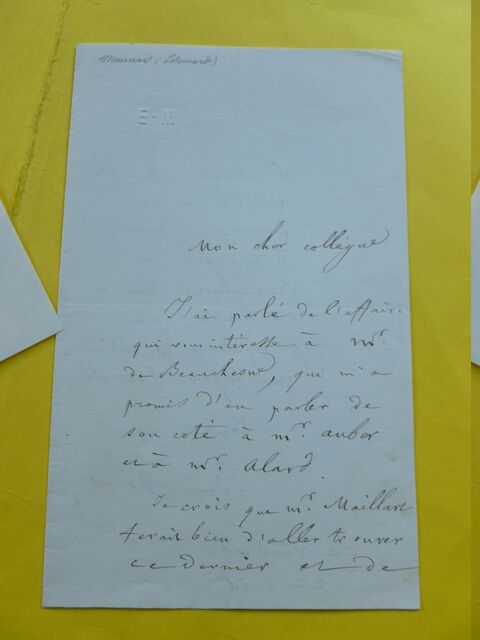 Monnais (Edouard)
Mon cher collègue
J'ai parlé de l'affaire
qui vous intéresse à Mr.
de Beauchesne, qui m'a
promis d'en parler de
son coté à Mr. auber
et à Mr. Alard.
Je crois que Mr. Maillart
ferait bien d'aller trouver
ce dernier et de